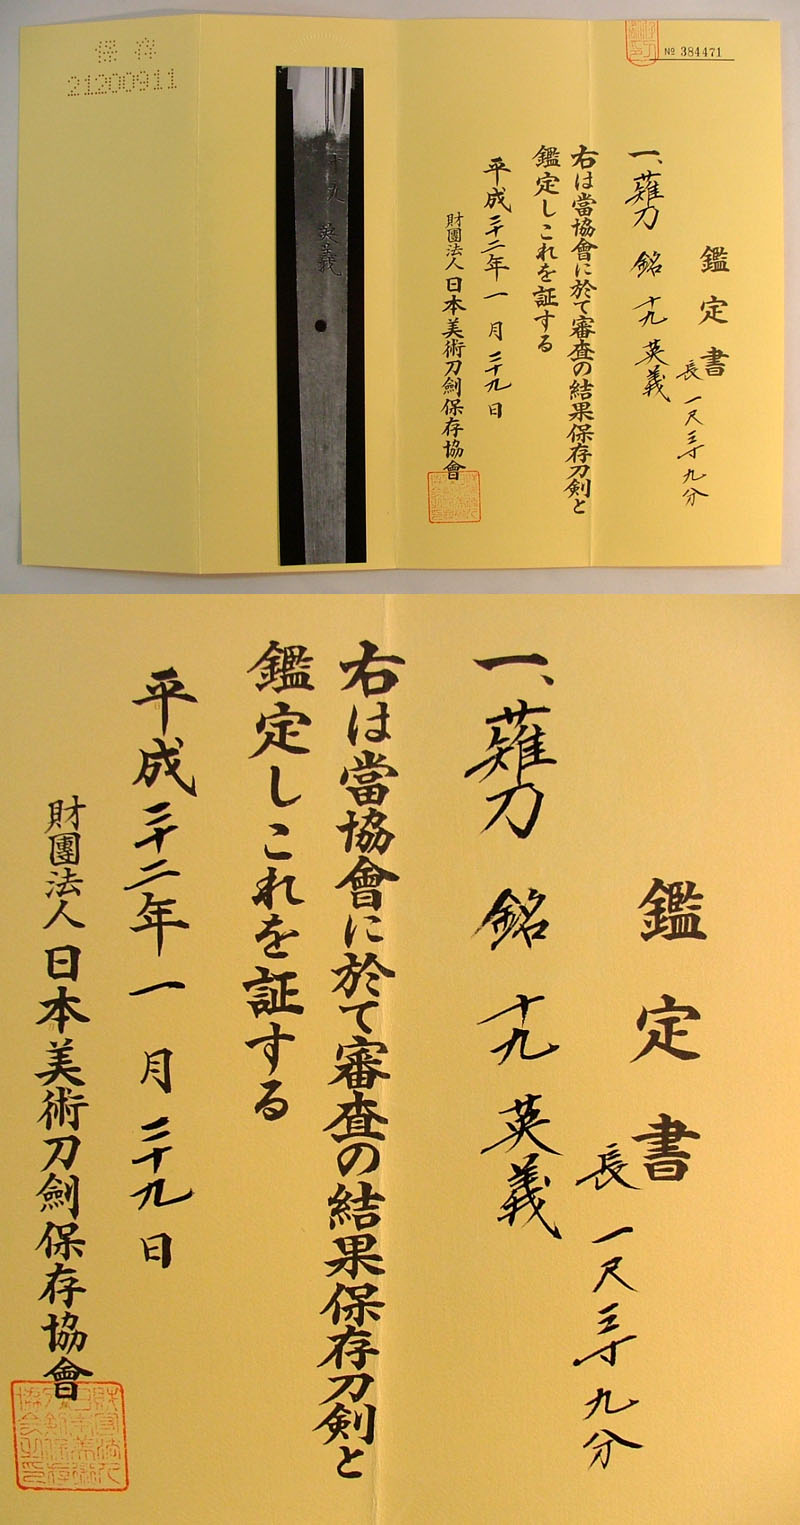 № 384471
鑑定書
長 一尺三寸九分
一、薙刀 銘 十九 英義
右は當協會に於て審査の結果保存刀剣と
鑑定しこれを証する
平成二十二年一月二十九日
財團法人日本美術刀劍保存協會
十九 英義
保存
21200911
鑑定書
長 一尺三寸九分
一、薙刀 銘 十九 英義
右は當協會に於て審査の結果保存刀剣と
鑑定しこれを証する
平成二十二年一月二十九日
財團法人日本美術刀劍保存協會